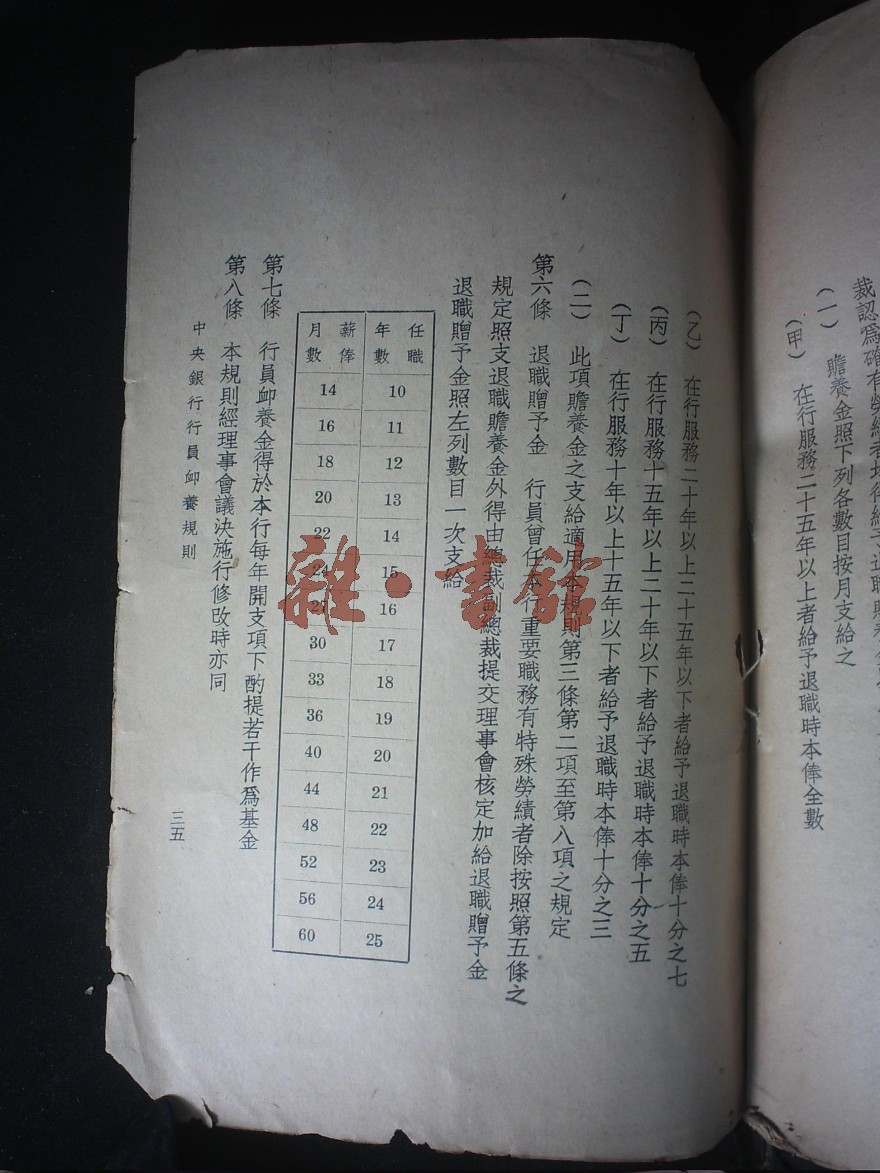 裁認爲確有勞績者均得給予退職贍養金
(一) 贍養金照下列各數目按月支給之
(甲) 在行服務二十五年以上者給予退職時本俸全數
(乙) 在行服務二十年以上二十五年以下者給予退職時本俸十分之七
(丙) 在行服務十五年以上二十年以下者給予退職時本俸十分之五
(丁) 在行服務十年以上十五年以下者給予退職時本俸十分之三
(二) 此項贍養金之支給適用本規則第三條第二項至第八項之規定
第六條 退職贈予金 行員曾任本行重要職務有特殊勞績者除按照第五條之
規定照支退職贍養金外得由總裁副總裁提交理事會核定加給退職贈予金
退職贈予金照左列數目一次支給
任職年數 薪俸月數
10 14
11 16
12 18
13 20
14 22
15 24
16
17 30
18 33
19 36
20 40
21 44
22 48
23 52
24 56
25 60
第七條 行員卹養金得於本行每年開支項下酌提若干作爲基金
第八條 本規則經理事會議決施行修改時亦同
中央銀行行員卹養規則
三五
雜·書館